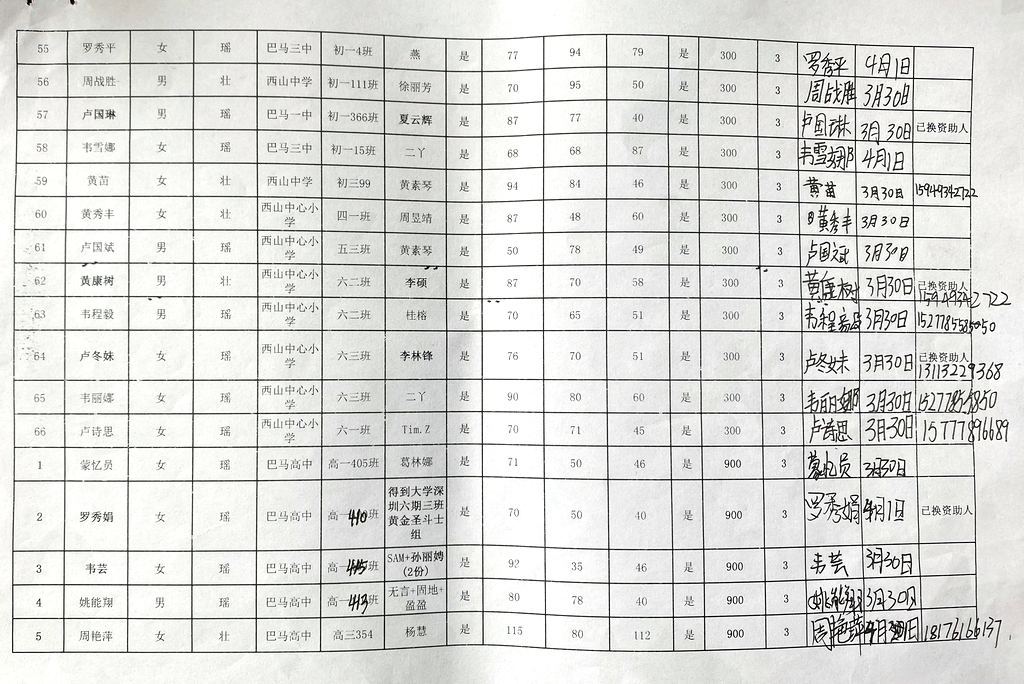 55 罗秀平 女 瑶 巴马三中 初一4班 燕 是 77 94 79 是 300 3 罗秀平 4月1日
56 周战胜 男 壮 西山中学 初一111班 徐丽芳 是 70 95 50 是 300 3 周战胜 3月30日
57 卢国琳 男 瑶 巴马一中 初一366班 夏云辉 是 87 77 40 是 300 3 卢国琳 3月30日 已换资助人
58 韦雪娜 女 瑶 巴马三中 初一15班 二丫 是 68 68 87 是 300 3 韦雪娜 4月1日
59 黄苗 女 壮 西山中学 初三99 黄素琴 是 94 84 46 是 300 3 黄苗 3月30日 15949342722
60 黄秀丰 女 壮 西山中心小学 四一班 周昱靖 是 87 48 60 是 300 3 黄秀丰 3月30日
61 卢国斌 男 瑶 西山中心小学 五三班 黄素琴 是 50 78 49 是 300 3 卢国斌 3月30日
62 黄康树 男 壮 西山中心小学 六二班 李硕 是 87 70 58 是 300 3 黄康树 3月30日 已换资助人 15949342722
63 韦程毅 男 瑶 西山中心小学 六二班 桂榕 是 70 65 51 是 300 3 韦程毅 3月30日
64 卢冬妹 女 瑶 西山中心小学 六三班 李林锋 是 76 70 51 是 300 3 卢冬妹 3月30日 已换资助人 13113229368
65 韦丽娜 女 瑶 西山中心小学 六三班 二丫 是 90 80 60 是 300 3 韦丽娜 3月30日
66 卢诗思 女 瑶 西山中心小学 六一班 Tim.Z 是 70 71 45 是 300 3 卢诗思 3月30日 15777896689
1 蒙忆员 女 瑶 巴马高中 高一405班 葛林娜 是 71 50 46 是 900 3 蒙忆员 3月30日
2 罗秀娟 女 瑶 巴马高中 高一410班 得到大学深圳六期三班黄金圣斗士组 是 70 50 40 是 900 3 罗秀娟 4月1日 已换资助人
3 韦芸 女 瑶 巴马高中 高一415班 SAM+孙丽娉(2份) 是 92 35 46 是 900 3 韦芸 3月30日
4 姚能翔 男 瑶 巴马高中 高一413班 无言+固地+盈盈 是 80 78 40 是 900 3 姚能翔 3月30日
5 周艳萍 女 壮 巴马高中 高三354 杨慧 是 115 80 112 是 900 3 周艳萍 18176166137